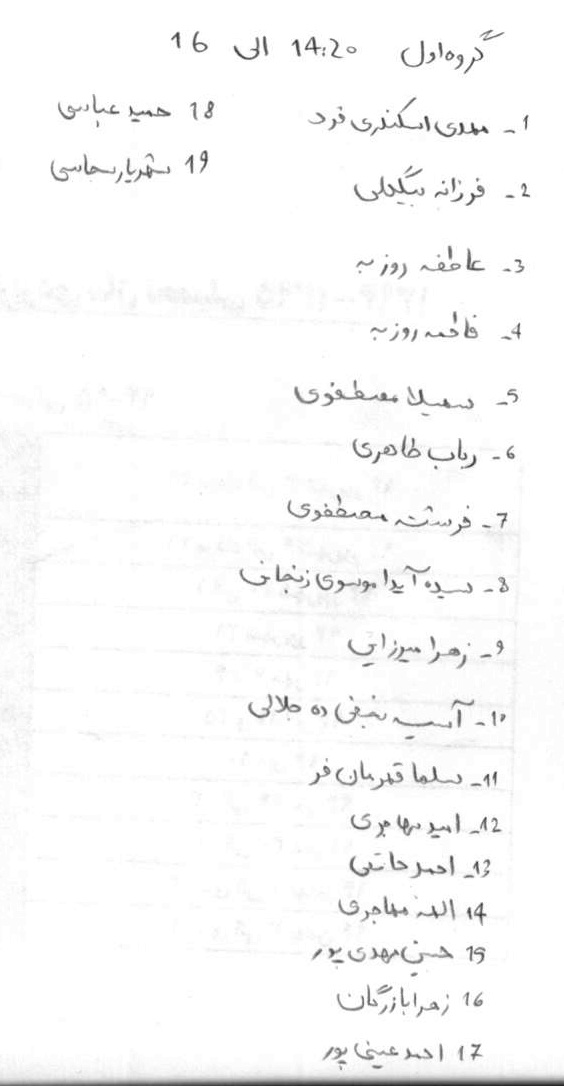 گروه اول 14:20 الی 16
1- مهدی اسکندری فرد
2- فرزانه بیگدلی
3- عاطفه روزبه
4- فاطمه روزبه
5- سهیلا مصطفوی
6- رباب طاهری
7- فرشته مصطفوی
8- سیده آیدا موسوی زنجانی
9- زهرا میرزایی
10- آسیه نجفی ده جلالی
11- سلما قهرمان فر
12- امید مهاجری
13- احمد حاتمی
14 الهه مهاجری
15 حسن مهدی پور
16 زهرا بازرگان
17 احمد عینی پور
18 حمید عباسی
19 شهریار سجاسی